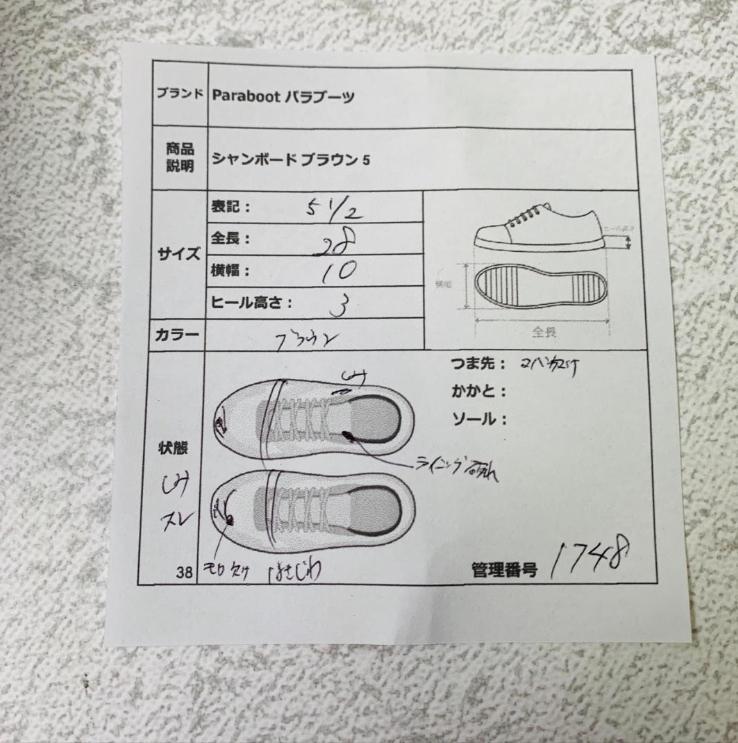 ブランド Paraboot パラブーツ
商品
説明 シャンボード ブラウン 5
サイズ
表記： 5 1/2
全長： 28
横幅： 10
ヒール高さ： 3
ヒール高さ
横幅
全長
カラー ブラウン
つま先：
かかと：
ソール：
状態
シミ
スレ
シミ
ライニング破れ
はきじわ
38
管理番号 1748